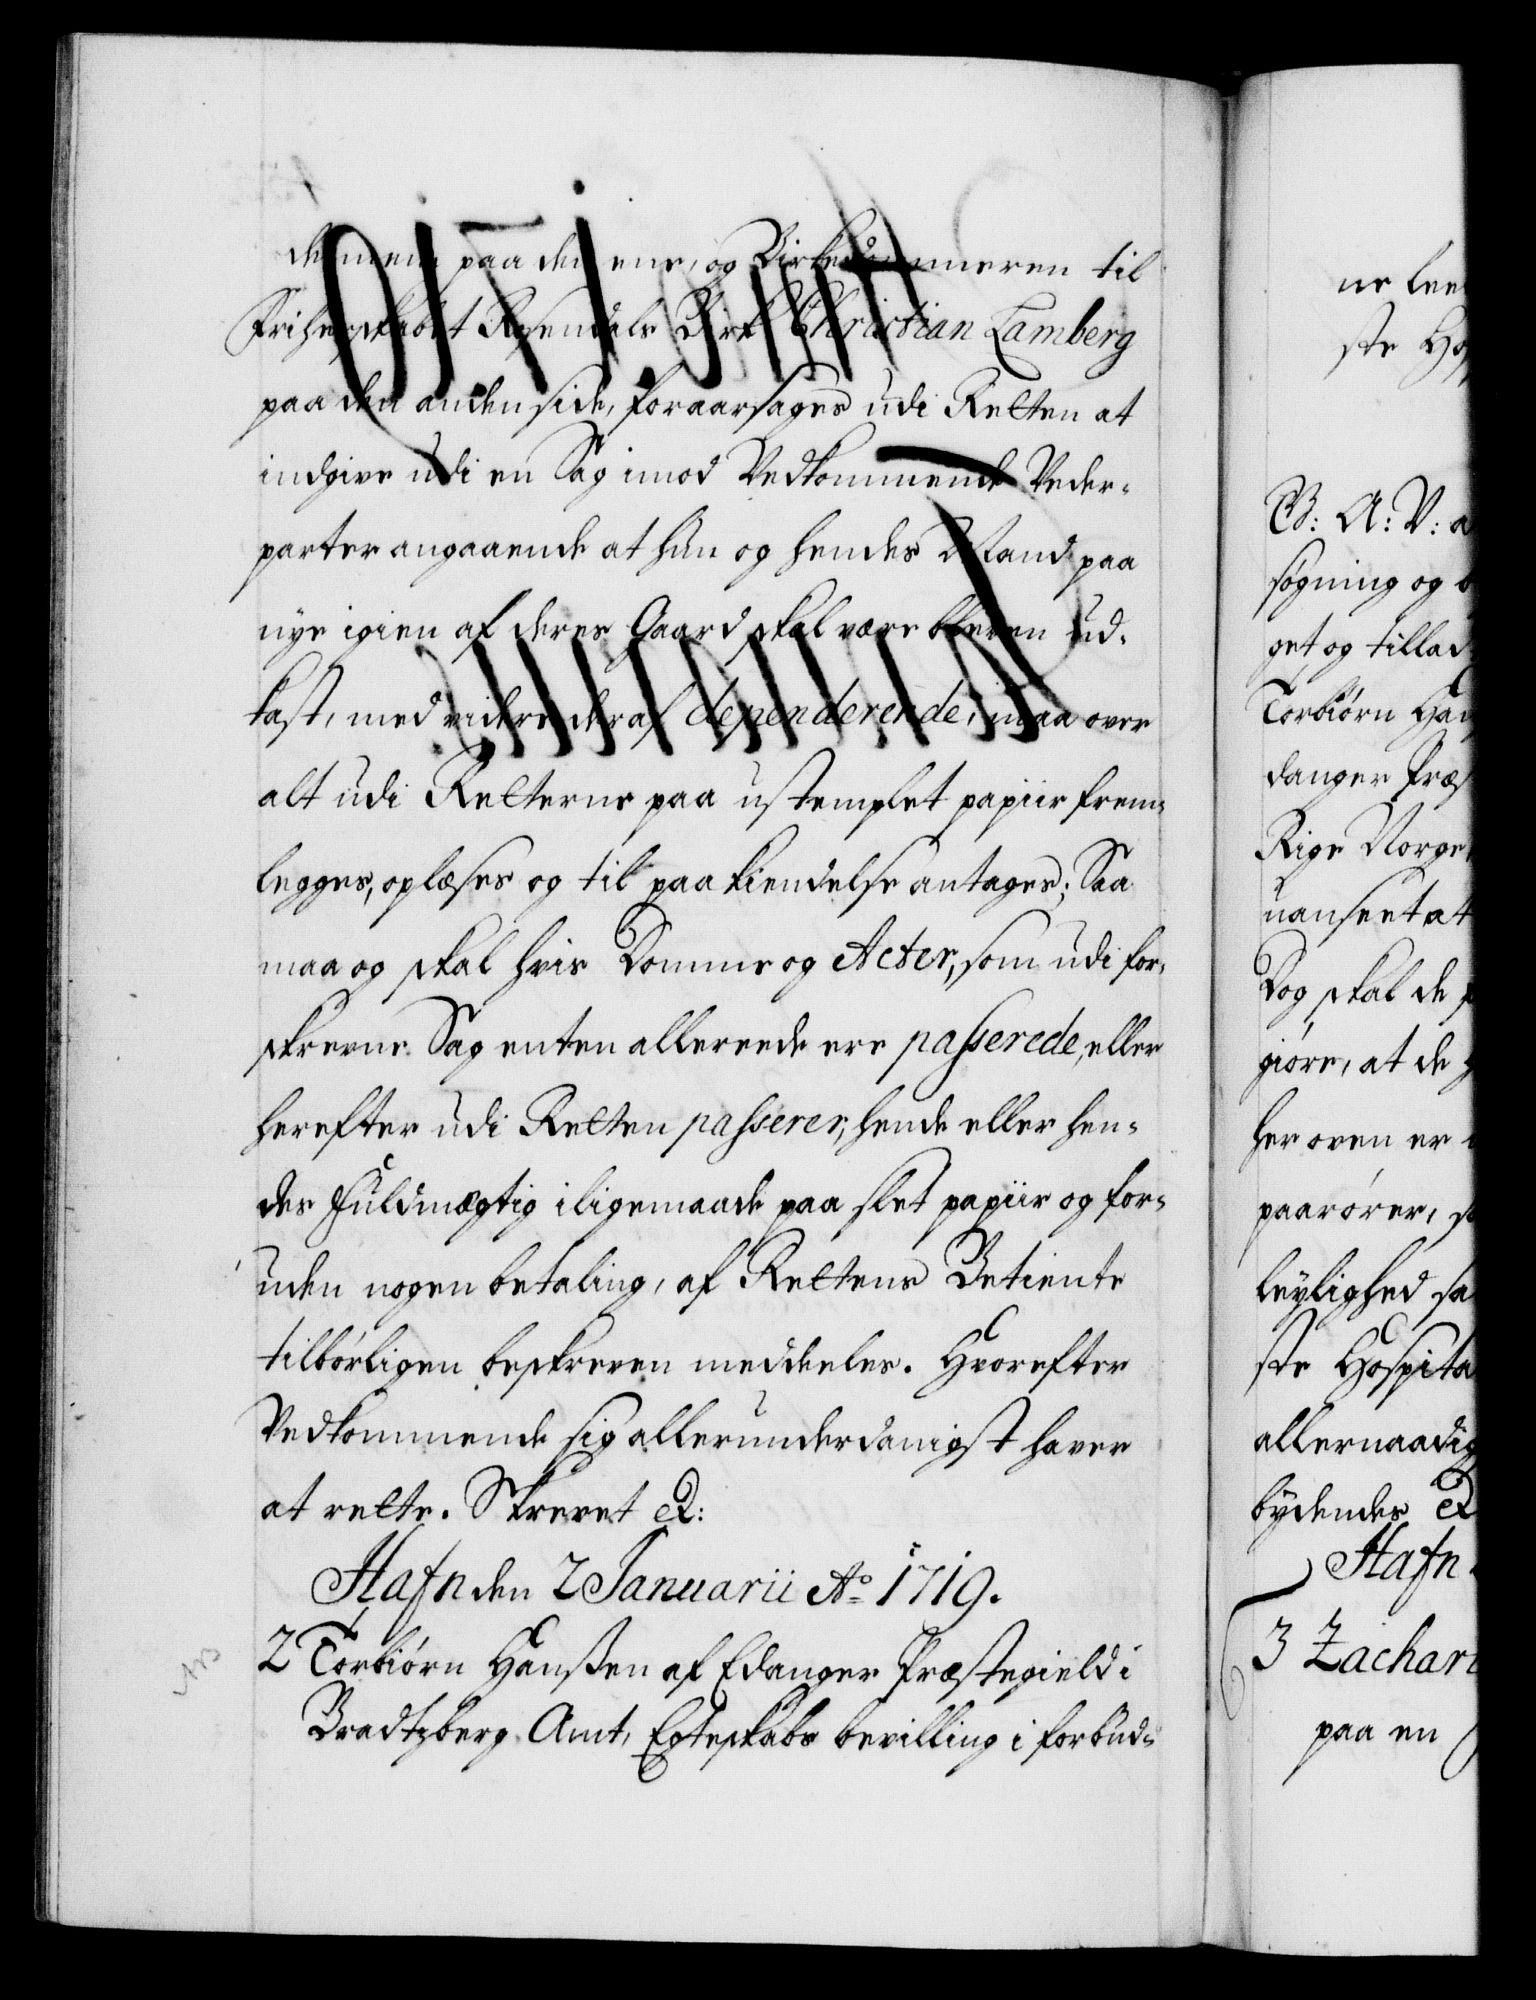 demene paa den ene, og Birkedommeren til
Friherskabet Rosendals Birk Christian Lamberg
paa den anden side, foraarsages udi Retten at
indgive udi en Sag imod Vedkommende Veder-
parter angaaende at hun og hendes Mand paa
nye igien af deres Gaard skal være bleven ud-
kast, med videre deraf dependerende, maa over
alt udi Retterne paa ustemplet papiir frem-
legges, oplæses og til paakiendelse antages; Saa
maa og skal hvis Domme og Acter, som udi for-
skrevne Sag enten allereede ere passerede, eller
herefter udi Retten passerer, hende eller hen-
des Fuldmægtig iligemaade paa slet papiir og for-
uden nogen betaling, af Rettens Betiente
tilbørligen beskreven meddeeles. Hvorefter
Vedkommende sig allerunderdanigst haver
at rette. Skrevet etc:
Hafn den 2 Januarii Ao 1719.
NB
2 Torbiørn Hanssen af Edanger Præstegield i
Bradtzberg Amt, Egteskabs bevilling i forbud-
ne leed
ste Ho
B: A: V: a
søgning og b
get og tillad
Torbiørn Han
danger Præs
Rige Norge
uanseet at
Dog skal de
giøre, at de
her oven er
paarører, so
leylighed sa
ste Hospita
allernaadig
bydendes etc
Hafn
3 Zachari
paa en